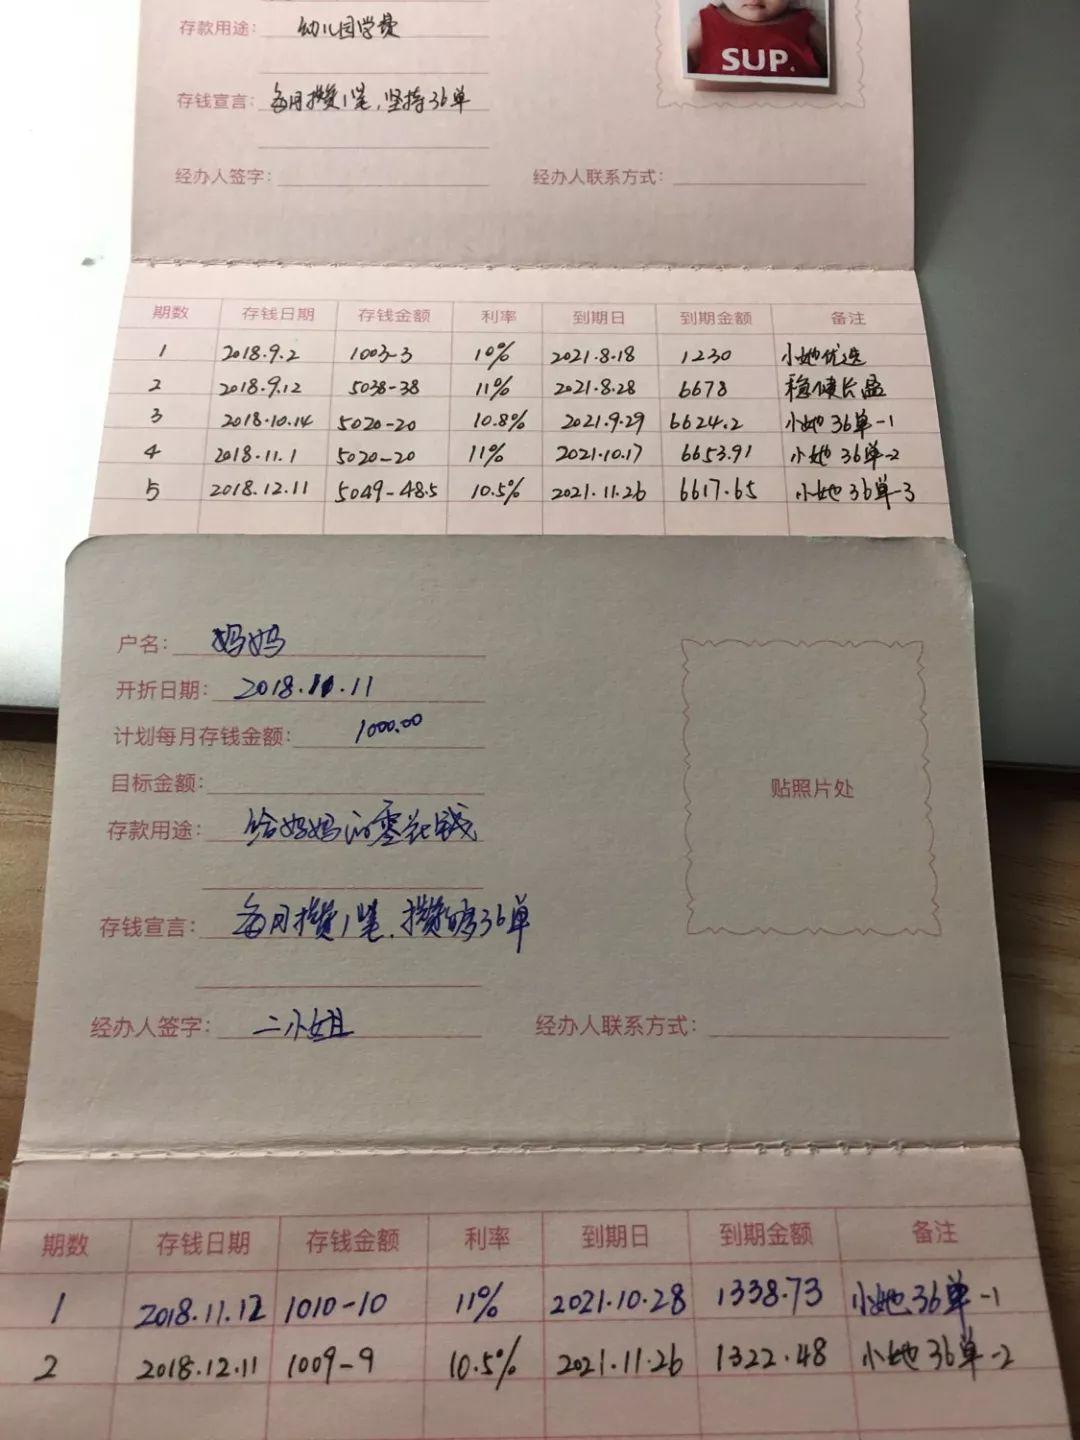 存款用途: 幼儿园学费
SUP.
存钱宣言: 每月攒1笔,坚持36单
经办人签字: 经办人联系方式:
期数 存钱日期 存钱金额 利率 到期日 到期金额 备注
1 2018.9.2 1003-3 10% 2021.8.18 1230 小她优选
2 2018.9.12 5038-38 11% 2021.8.28 6678 稳健长盈
3 2018.10.14 5020-20 10.8% 2021.9.29 6624.2 小她36单-1
4 2018.11.1 5020-20 11% 2021.10.17 6653.91 小她36单-2
5 2018.12.11 5049-48.5 10.5% 2021.11.26 6617.65 小她36单-3
户名: 妈妈
开折日期: 2018.11.11
计划每月存钱金额: 1000.00
目标金额:
贴照片处
存款用途: 给妈妈的零花钱
存钱宣言: 每月攒1笔.攒够36单
经办人签字: 二小姐 经办人联系方式:
期数 存钱日期 存钱金额 利率 到期日 到期金额 备注
1 2018.11.12 1010-10 11% 2021.10.28 1338.73 小她36单-1
2 2018.12.11 1009-9 10.5% 2021.11.26 1322.48 小她36单-2